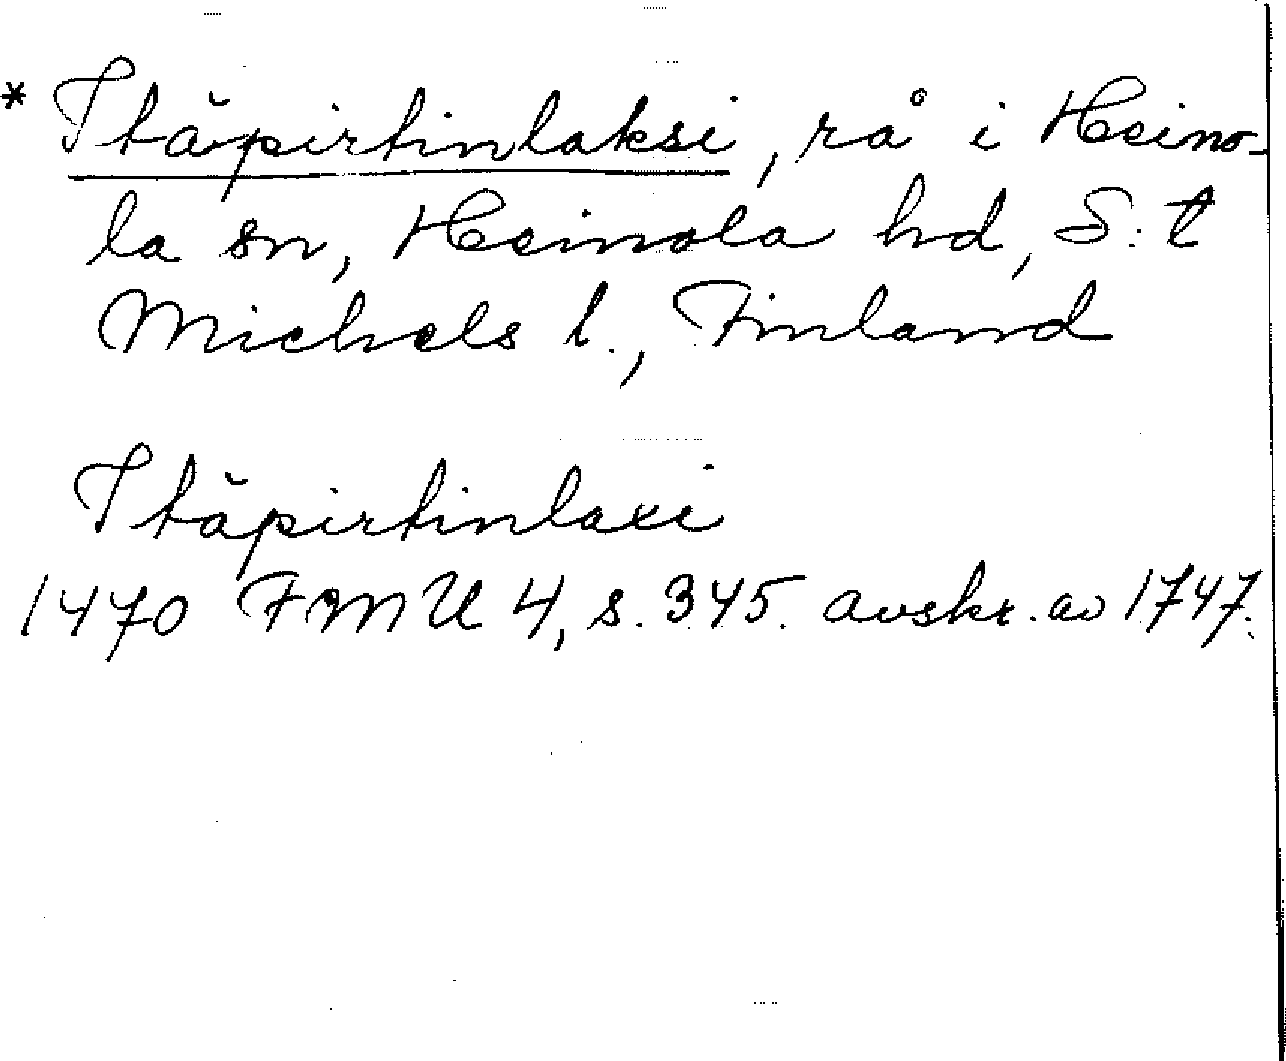 * Itäpirtinlaksi, rå i Heino-
la sn, Heinola hd, S:t
Michels l., Finland
Itäpirtinlaxi
1470 FMU 4, s. 345. avskr. av 1747.